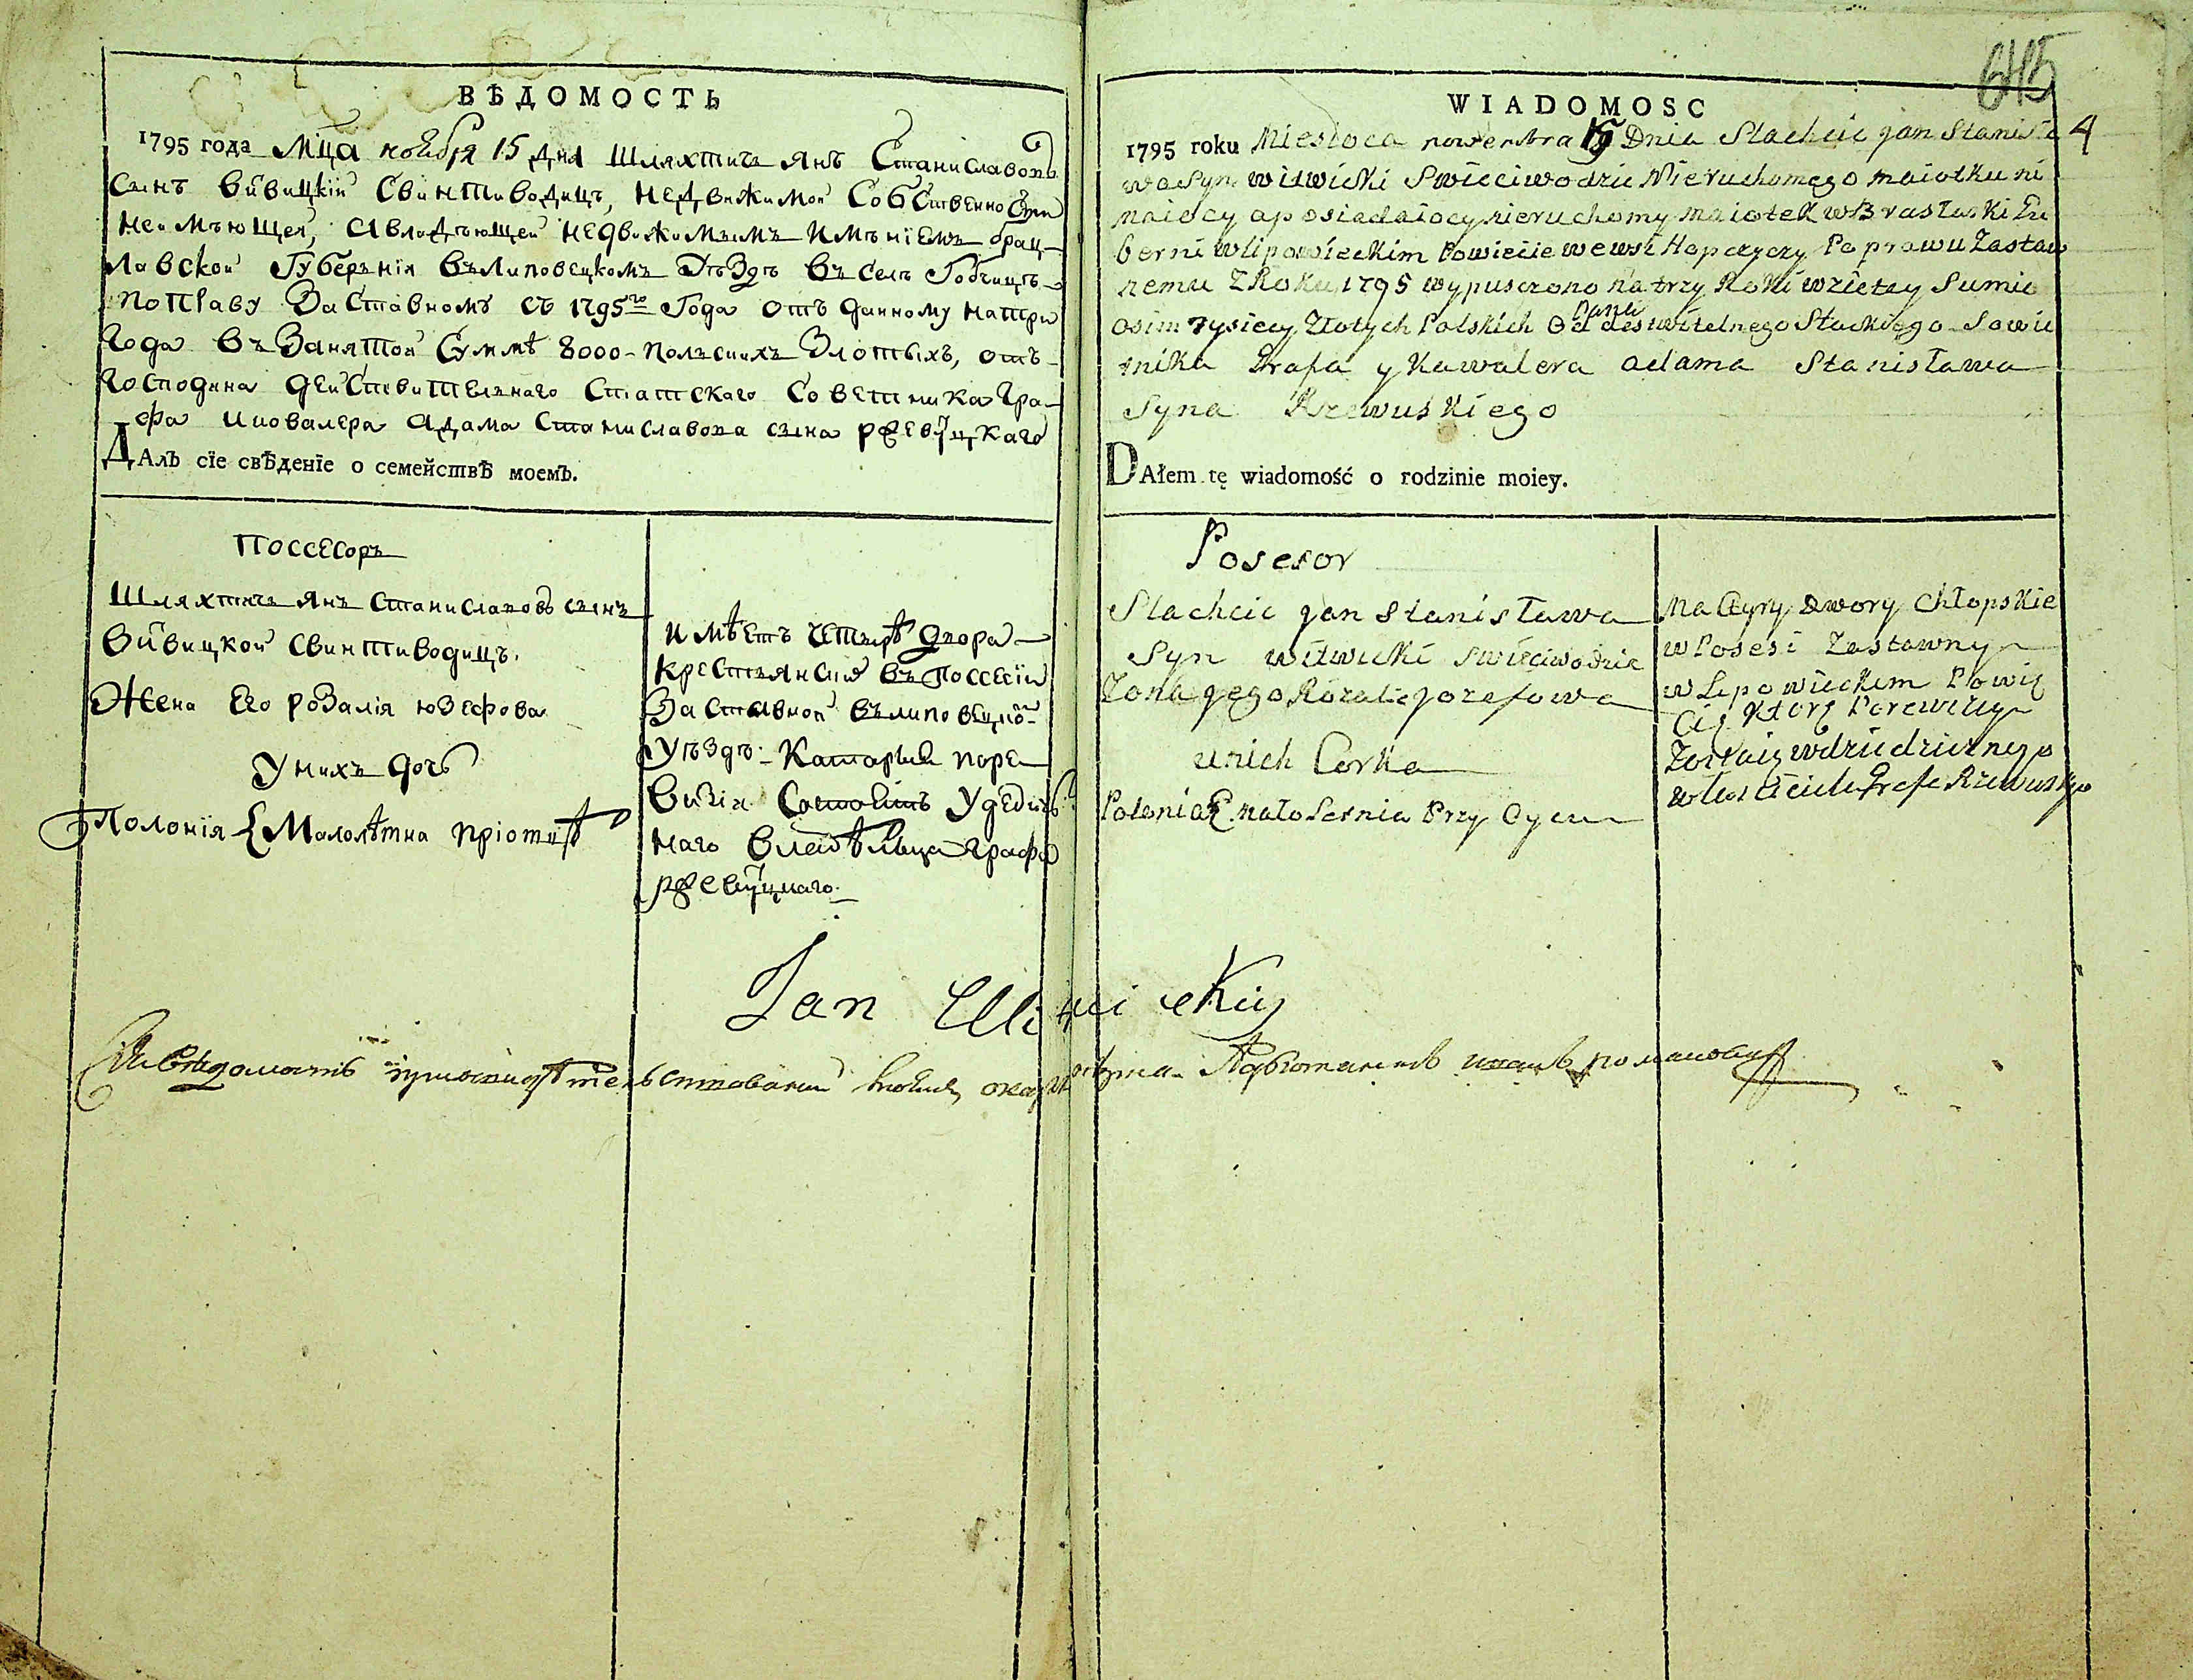 ВѢДОМОСТЬ
1795 года Мца ноября 15 дня Шляхтичъ Янъ Станиславовъ
сынъ Свинтиводицъ, недвижимой собственности
неимѣющей, авладѣющей недвижимымъ имѣнїемъ брац-
лавской Губернїи вълиповецкомъ Уѣздѣ въ селѣ
поправу Заставномъ съ 1795го Года отъ данному натри
года въ Занятой Суммѣ 8000 полскихъ Злотыхъ, отъ
господина дѣйствителнаго статскаго советника Гра-
фа икавалера Адама Станиславова сына ржевуцкаго
ДАлЪ сїе свѢденїе о семействѢ моемЪ.
Поссесоръ
Шляхтичъ Янъ Станиславовъ сынъ
Свинтиводицъ.
Жена Его розалія юзефова
У нихъ дочь
Полонїя малолѣтна пріотцѣ
имѣетъ четырѣ двора
крестьянскиѣ въ поссесіи
Заставной вълиповецкомъ
Уѣздѣ. Которыи поре-
визіи состоятъ
наго владѣльца Графа
ржевуцкаго.
645
WIADOMOSC
1795 roku Miesioca nowembra 15 Dnia Slachcic Jan Stanisla 4
wa Syn witwicki Swieciwodzic Nieruchomego maiotku ni
maiecy aposiadaiocy nieruchomy maiotek wBraslaski Gu
berni wlipowieckim Powiecie wewsi Hopczyczy Po prawu Zastaw
nemu Z Roku 1795 wypusczono na trzy Roki wzietey Sumie
osim Tysiecy Złotych Polskich Od Pana deswitelnego Stackiego Sowie
tnika Grafa y Kawalera adama Stanisława
Syna Rzewuskiego
DAłem tę wiadomość o rodzinie moiey.
Posesor
Slachcic Jan Stanisława
Syn witwicki Swieciwodzic
Zona jego Rozalie Jozefowa
unich Corka
Polonia małoletnia Przy Oycu
Ma Cztyry Dwory Chłopskie
wPosesi Zastawny
w Lipowieckim Powie
cie Ktore Porewizyi
wdziedzicznego
własciciela Grafa Rzewuskego
Jan Witwicki